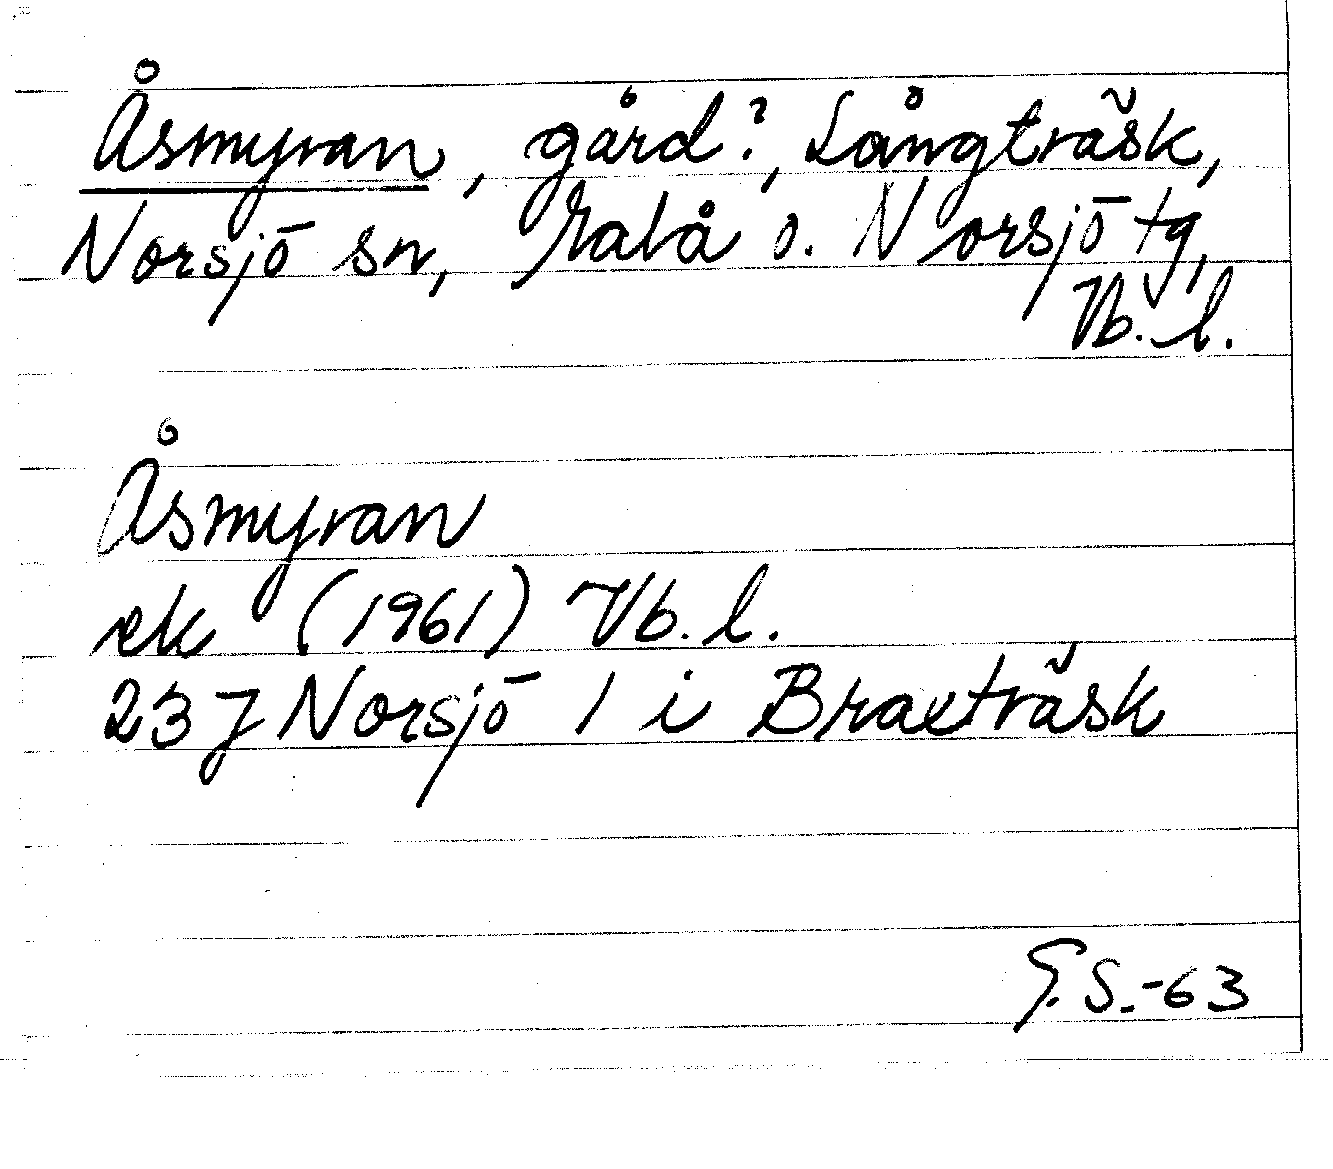 Åsmyran, gård?, Långträsk,
Norsjö sn, Malå o. Norsjö tg,
Vb. l.
Åsmyran
ek (1961) Vb. l.
23J Norsjö 1 i Braxträsk
G.S.-63